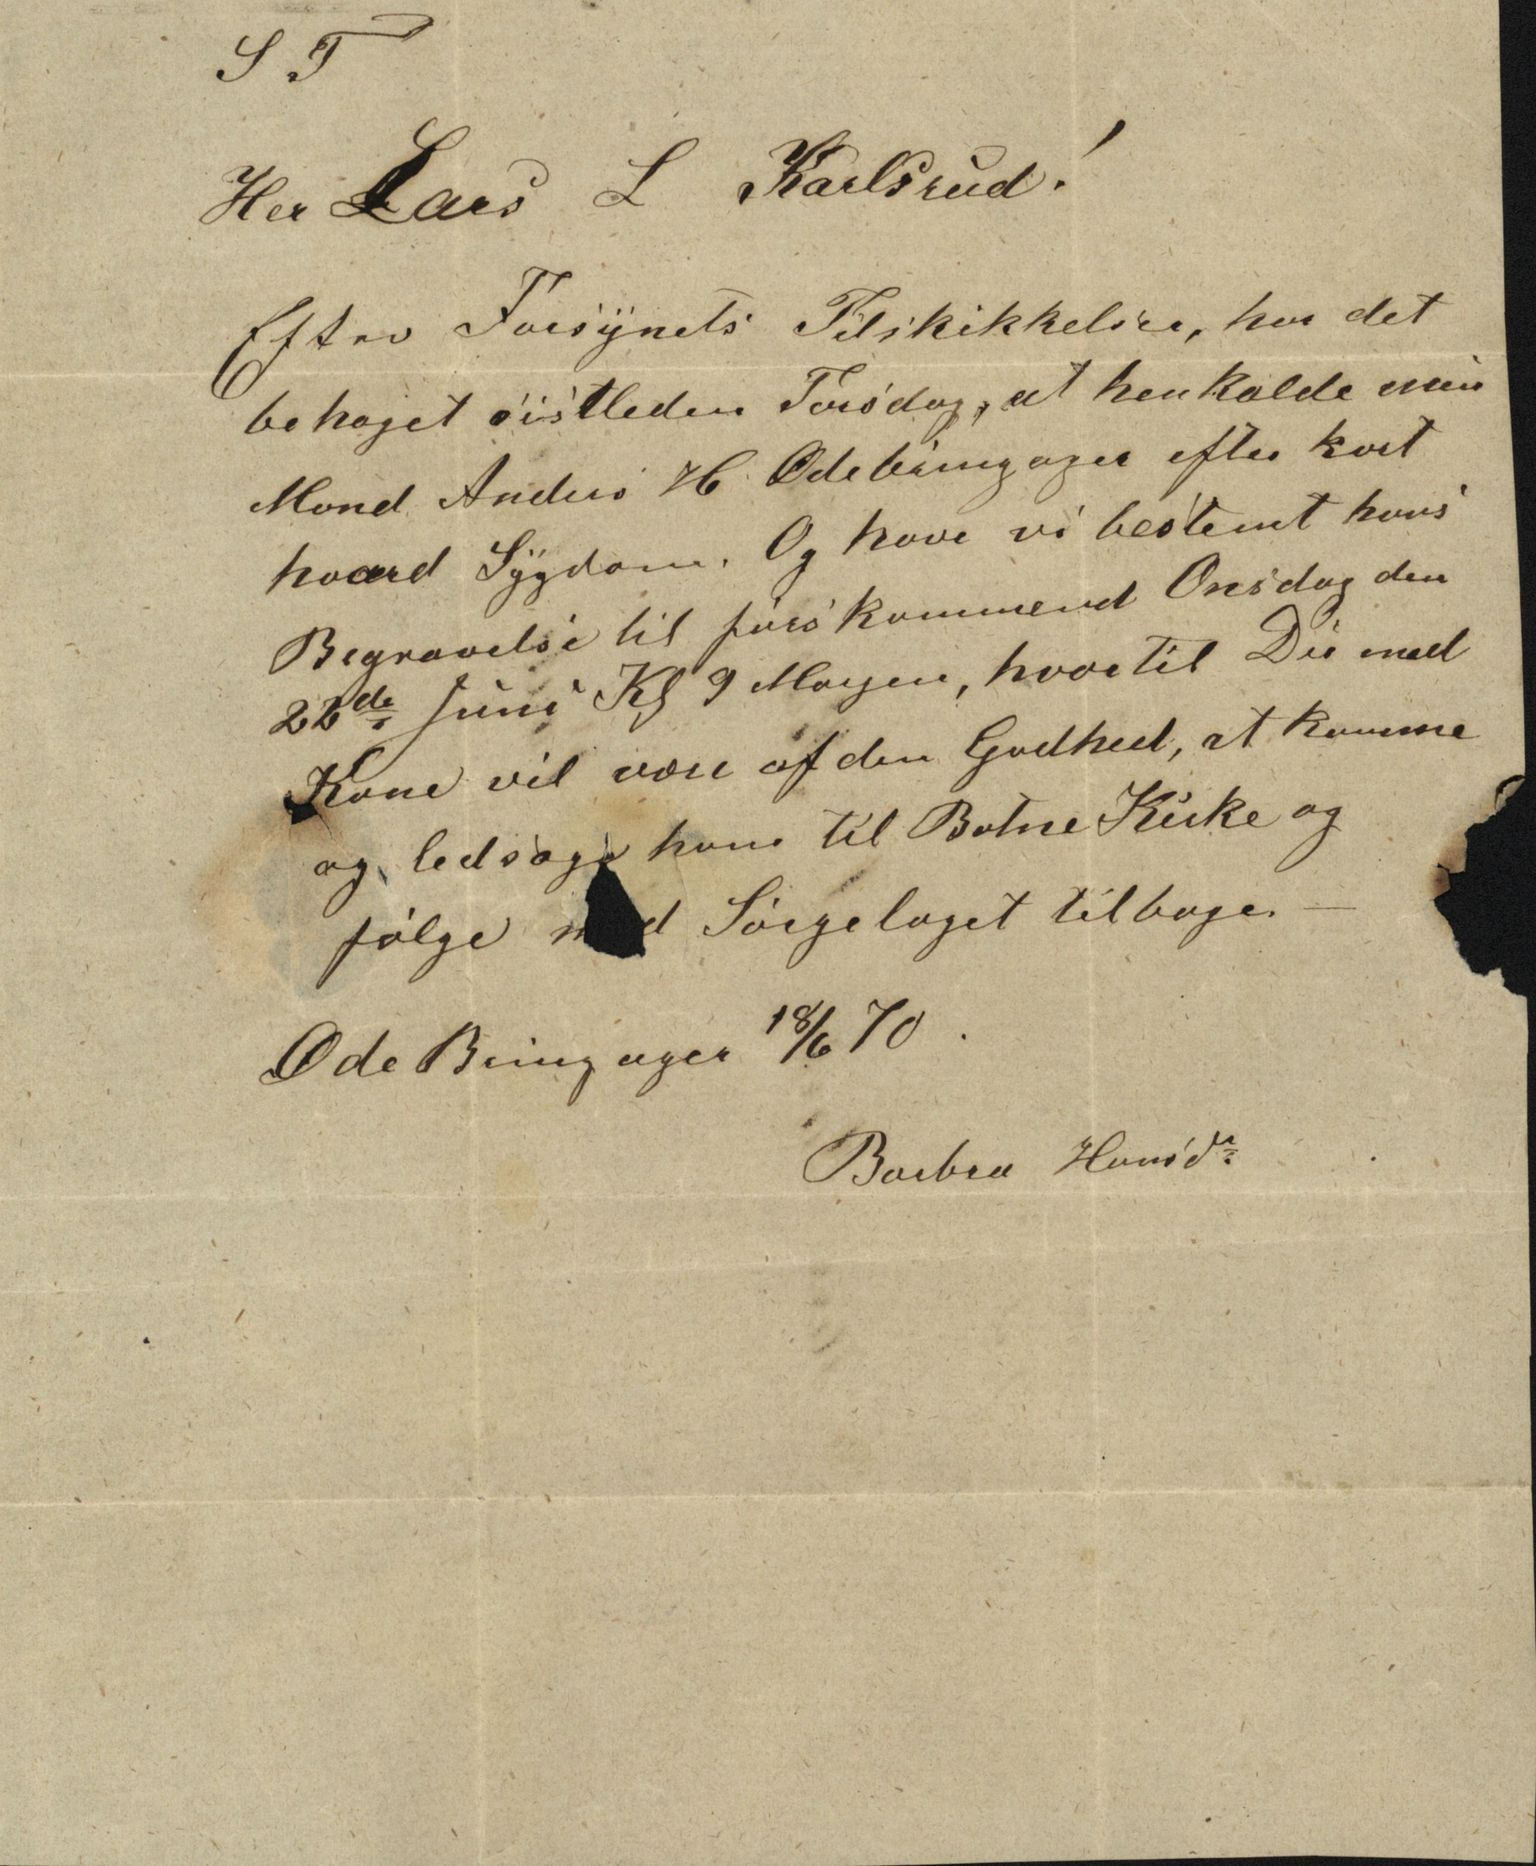 S T
Her Lars L Karlsrud!
Efter Forsÿnets Tilskikkelse, har det
behaget sistleden Torsdag, at henkalde min
Mand Anders H Ødebringager efter kort
hvard Sÿgdom. Og have vi bestemt hans
Begravelse til førskommend Onsdag den
22de Juni Kl 9 Morgen, hvortil Die med
Kone vil være af den Godhed, at komme
og ledsage ham til Botne Kirke og
følge med Sørgelaget tilbage. —
Øde Bringager 18/6 70.
Barbra Hansdr